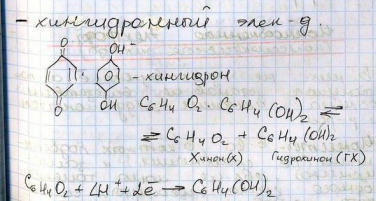 - хингидронный элек-д.
O OH
- хингидрон
O OH
C₆H₄O₂ · C₆H₄(OH)₂ ⇌
⇌ C₆H₄O₂ + C₆H₄(OH)₂
Хинон(Х) Гидрохинон (ГХ)
C₆H₄O₂ + 2H⁺ + 2ē → C₆H₄(OH)₂